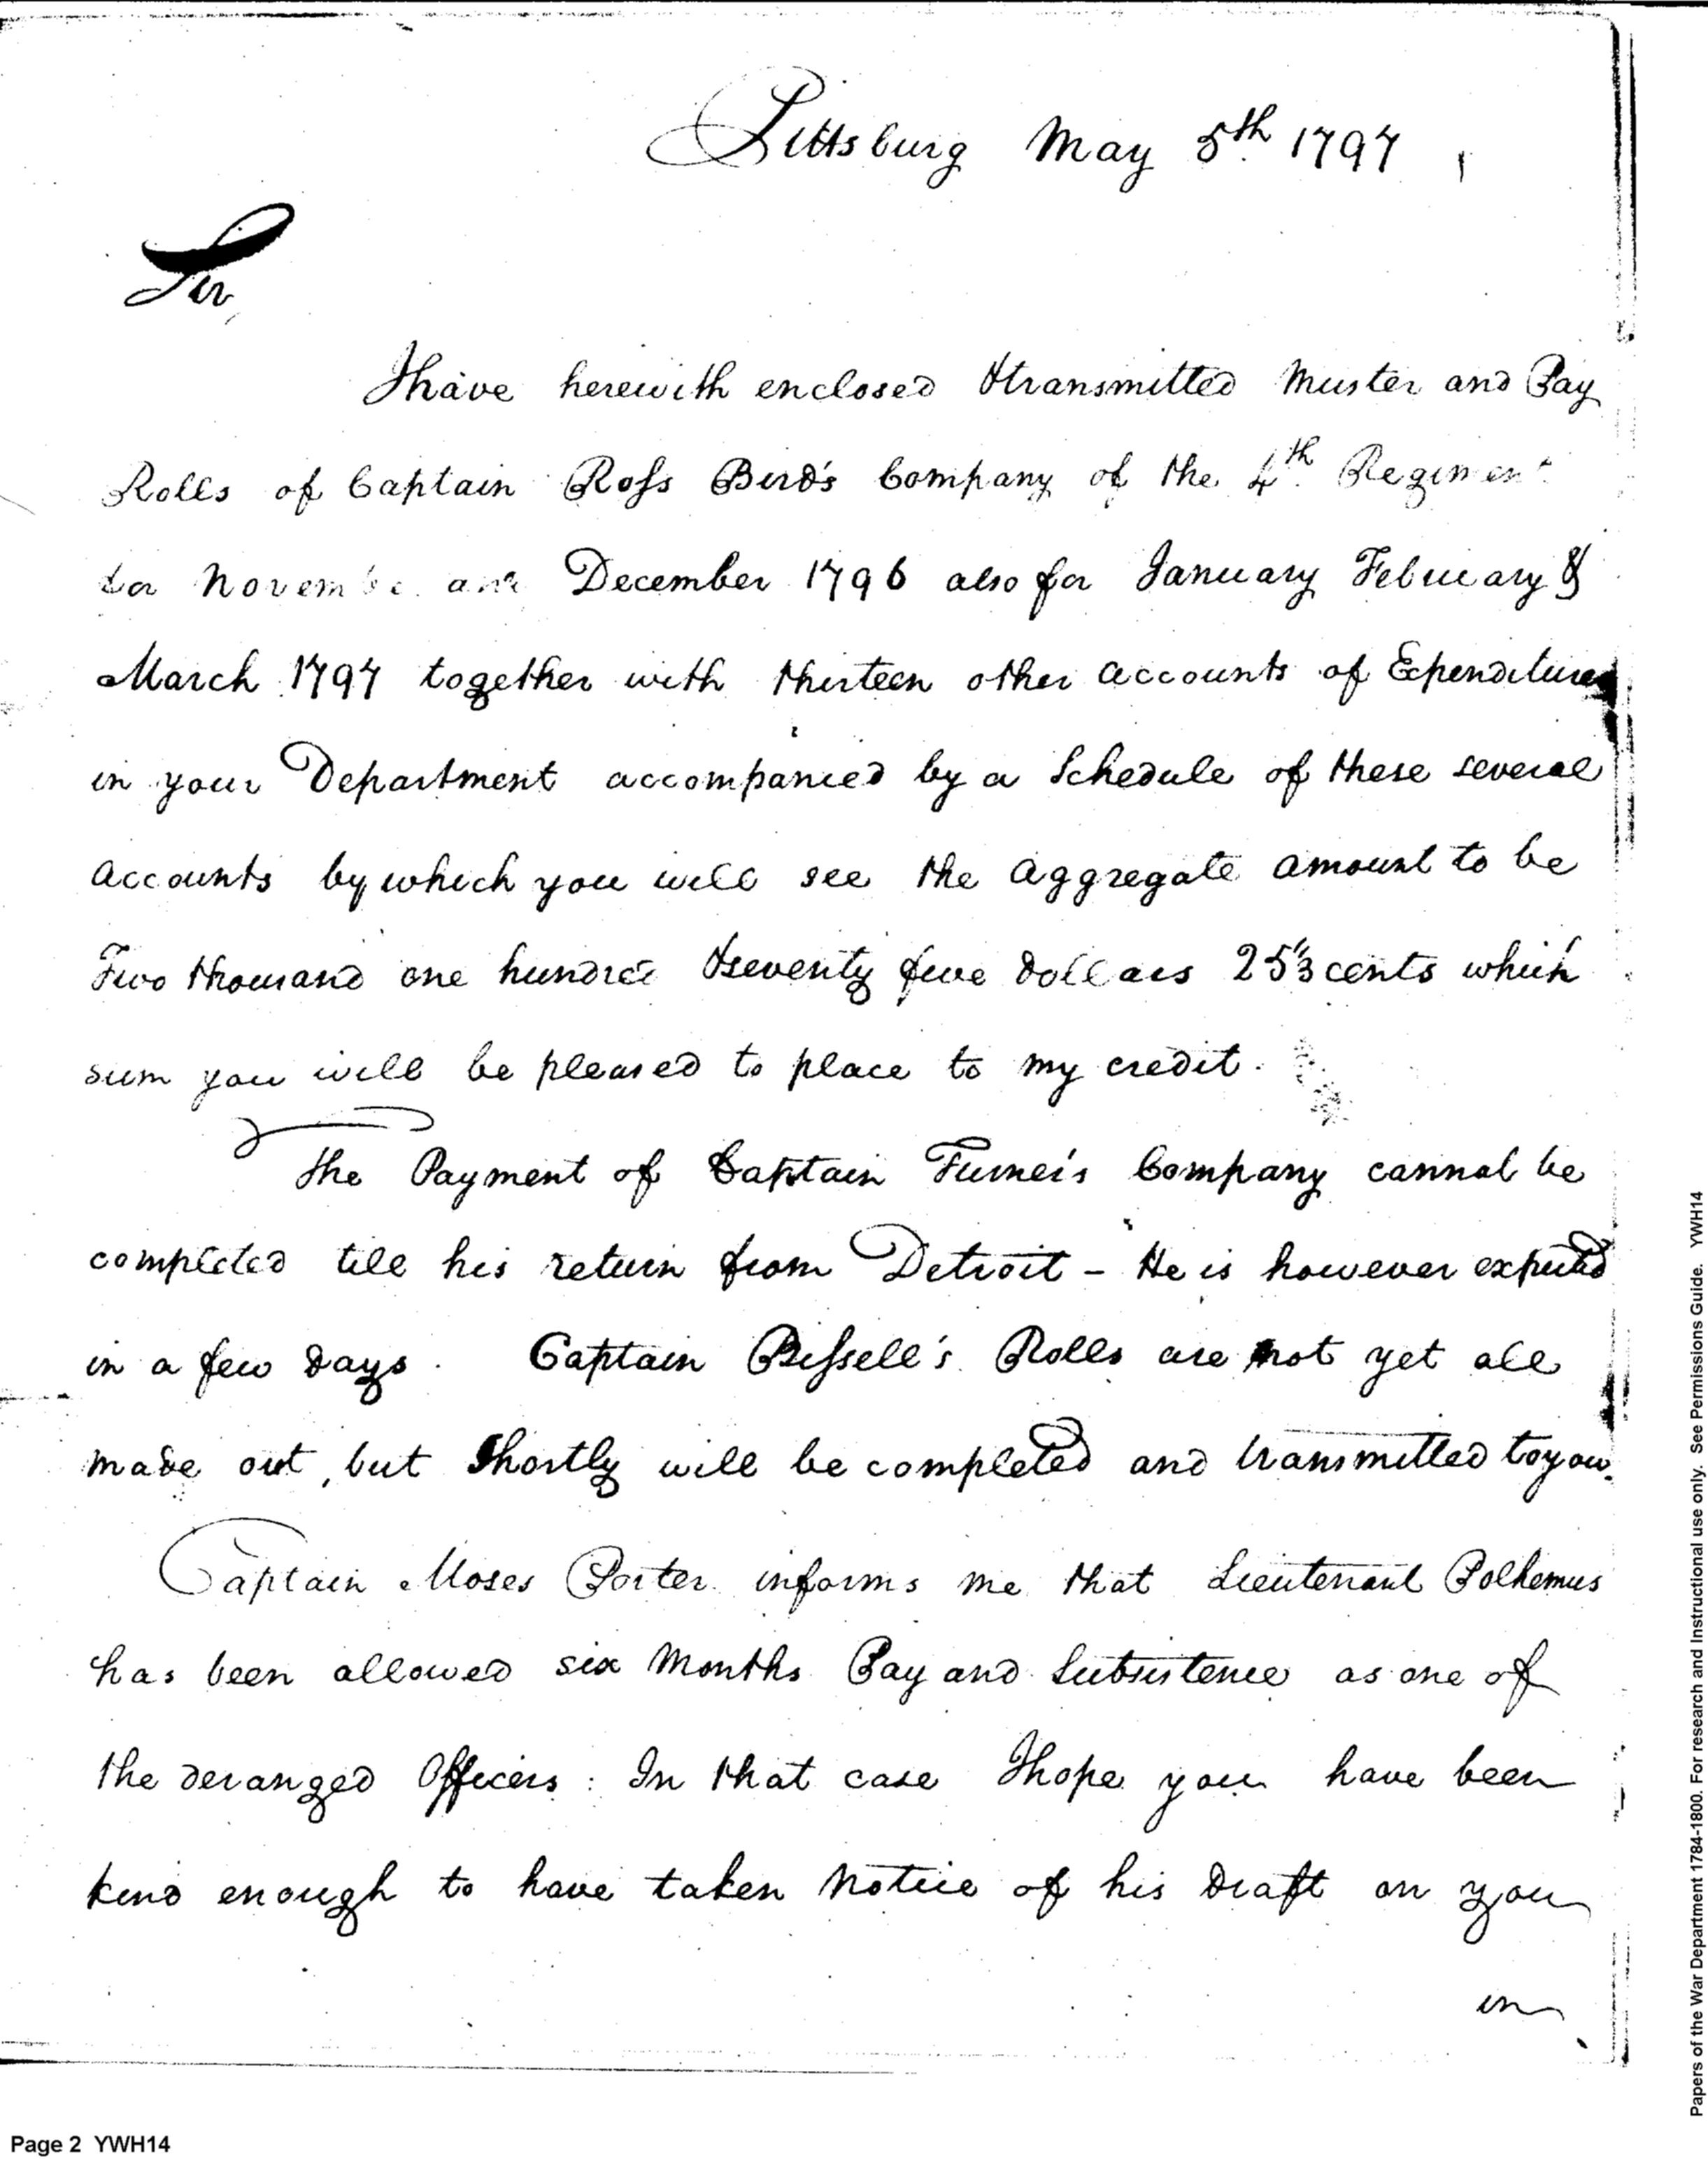 Pittsburg May 5th 1797
Sir,
I have herewith enclosed & transmitted Muster and Pay
Rolls of Captain Ross Bird's Company of the 4th Regiment
for November and December 1796 also for January February &
March 1797 together with thirteen other accounts of Ependitures
in your Department accompanied by a Schedule of these several
accounts by which you will see the aggregate amount to be
Two thousand one hundred & seventy five dollars 25 1/3 cents which
sum you will be pleased to place to my credit.
The Payment of Captain Company cannot be
completed till his return from Detroit - He is however expected
in a few days. Captain Bissell's Rolls are not yet all
made out, but shortly will be completed and transmitted to you.
Captain Moses Porter informs me that Lieutenant Polhemus
has been allowed six Months Pay and Subsistence as one of
the deranged Officers: In that case I hope you have been
kind enough to have taken Notice of his Draft on you
in
Page 2 YWH14
Papers of the War Department 1784-1800. For research and Instructional use only. See Permissions Guide. YWH14